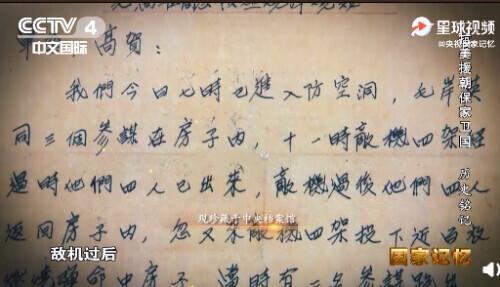 CCTV 4
中文国际
星球视频
@央视国家记忆
抗美援朝保家卫国 历史铭记
高賀:
我們今日七時已進入防空洞,毛岸英
同三個參謀在房子內,十一時敵機四架經
過時他們四人已出來,敵機過後他們四人
现珍藏于中央档案馆
返回房子內,忽又來敵機四架投下近百枚
燃燒彈命中房子,當時有二名參謀跑出
敌机过后
国家记忆